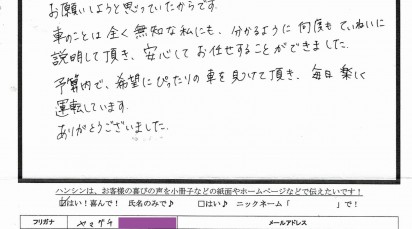 お願いしようと思っていたからです.
車のことは全く無知な私にも、分かるように何度もていねいに
説明して頂き、安心してお任せすることができました.
予算内で、希望にぴったりの車を見つけて頂き、毎日楽しく
運転しています.
ありがとうございました.
ハンシンは、お客様の喜びの声を小冊子などの紙面やホームページなどで伝えたいです！
☑はい！喜んで！ 氏名のみで♪ □はい♪ ニックネーム「 」で！
フリガナ ヤマグチ メールアドレス